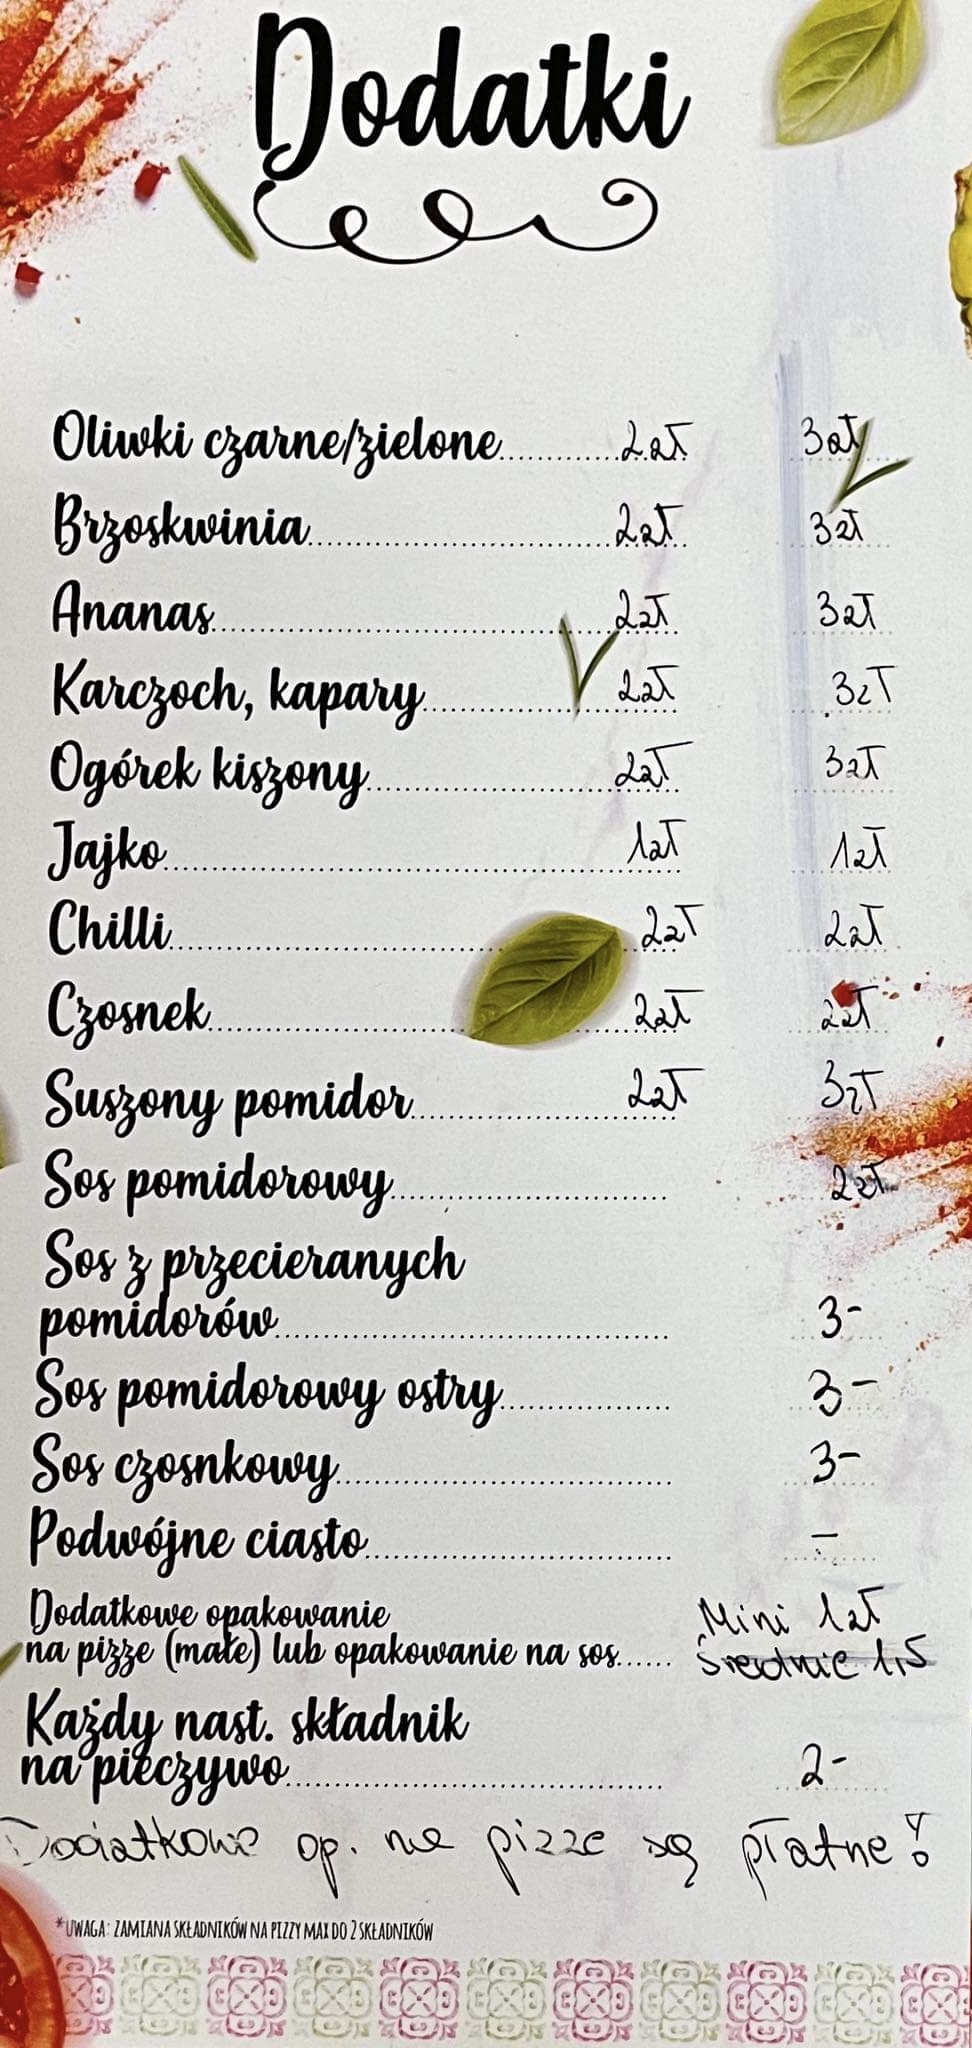 Dodatki
Oliwki czarne/zielone 2zł 3zł
Brzoskwinia 2zł 3zł
Ananas 2zł 3zł
Karczoch, kapary 2zł 3zł
Ogórek kiszony 2zł 3zł
Jajko 1zł 1zł
Chilli 2zł 2zł
Czosnek 2zł 2zł
Suszony pomidor 2zł 3zł
Sos pomidorowy 2zł
Sos z przecieranych
pomidorów 3-
Sos pomidorowy ostry 3-
Sos czosnkowy 3-
Podwójne ciasto -
Dodatkowe opakowanie Mini 1zł
na pizzę (małe) lub opakowanie na sos Średnie 1,5
Każdy nast. składnik
na pieczywo 2-
Dodatkowe op. na pizze są płatne!
*UWAGA: ZAMIANA SKŁADNIKÓW NA PIZZY MAX DO 2 SKŁADNIKÓW